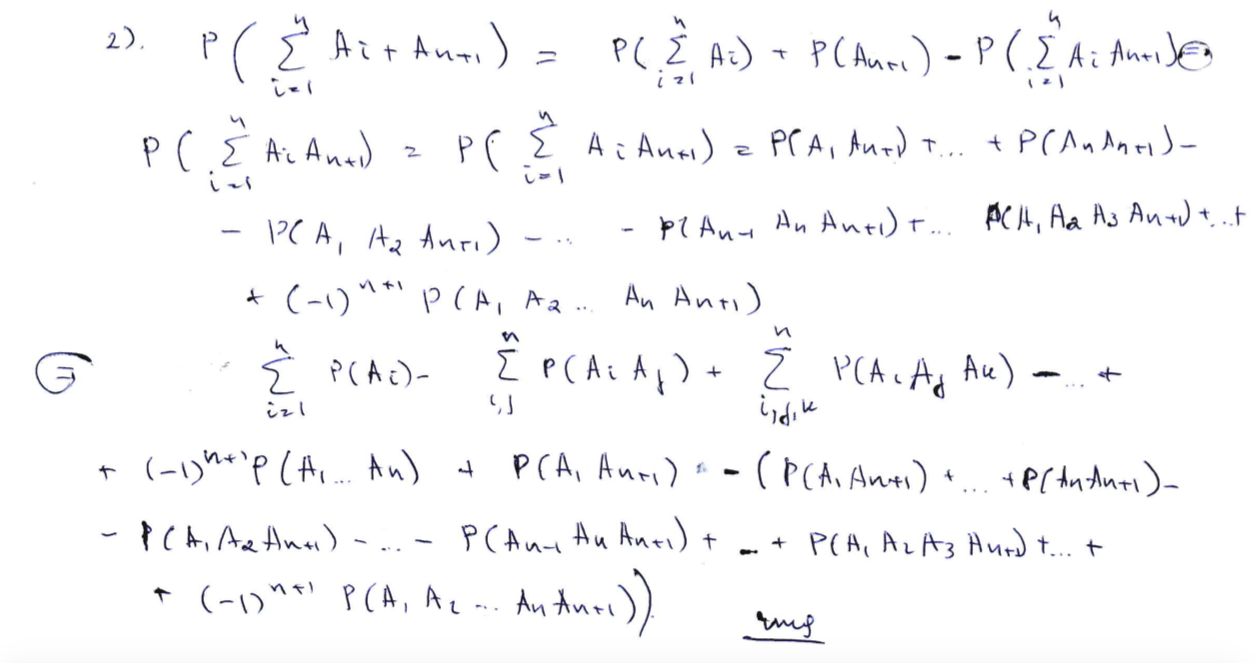 2). P( \sum_{i=1}^{n} A_i + A_{n+1} ) = P( \sum_{i=1}^{n} A_i ) + P(A_{n+1}) - P( \sum_{i=1}^{n} A_i A_{n+1} ) ⊜
P( \sum_{i=1}^{n} A_i A_{n+1} ) = P( \sum_{i=1}^{n} A_i A_{n+1} ) = P(A_1 A_{n+1}) + ... + P(A_n A_{n+1}) -
- P(A_1 A_2 A_{n+1}) - ... - P(A_{n-1} A_n A_{n+1}) + ... P(A_1 A_2 A_3 A_{n+1}) + ... +
+ (-1)^{n+1} P(A_1 A_2 ... A_n A_{n+1})
⊜ \sum_{i=1}^{n} P(A_i) - \sum_{i,j}^{n} P(A_i A_j) + \sum_{i,j,k}^{n} P(A_i A_j A_k) - ... +
+ (-1)^{n+1} P(A_1 ... A_n) + P(A_1 A_{n+1}) - ( P(A_1 A_{n+1}) + ... + P(A_n A_{n+1}) -
- P(A_1 A_2 A_{n+1}) - ... - P(A_{n-1} A_n A_{n+1}) + - + P(A_1 A_2 A_3 A_{n+1}) + ... +
+ (-1)^{n+1} P(A_1 A_2 ... A_n A_{n+1}) )